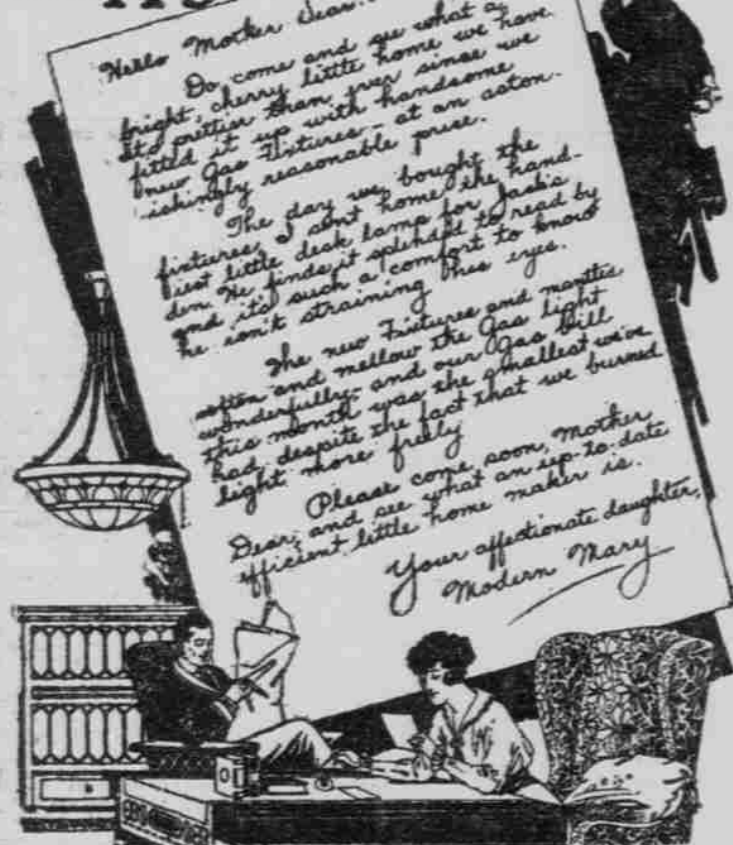 Hello Mother Dear:
Do come and see what a
bright, cherry little home we have.
It's prettier than ever since we
fitted it up with handsome
new Gas Fixtures - at an aston-
ishingly reasonable price.
The day we bought the
fixtures, I sent home the hand-
iest little desk lamp for Jack's
den. He finds it splendid to read by
and it's such a comfort to know
he isn't straining his eyes.
The new Fixtures and mantles
soften and mellow the Gas light
wonderfully - and our Gas Bill
this month was the smallest we've
had, despite the fact that we burned
light more freely
Please come soon, Mother
Dear, and see what an up-to-date
efficient little home maker is.
Your affectionate daughter,
Modern Mary